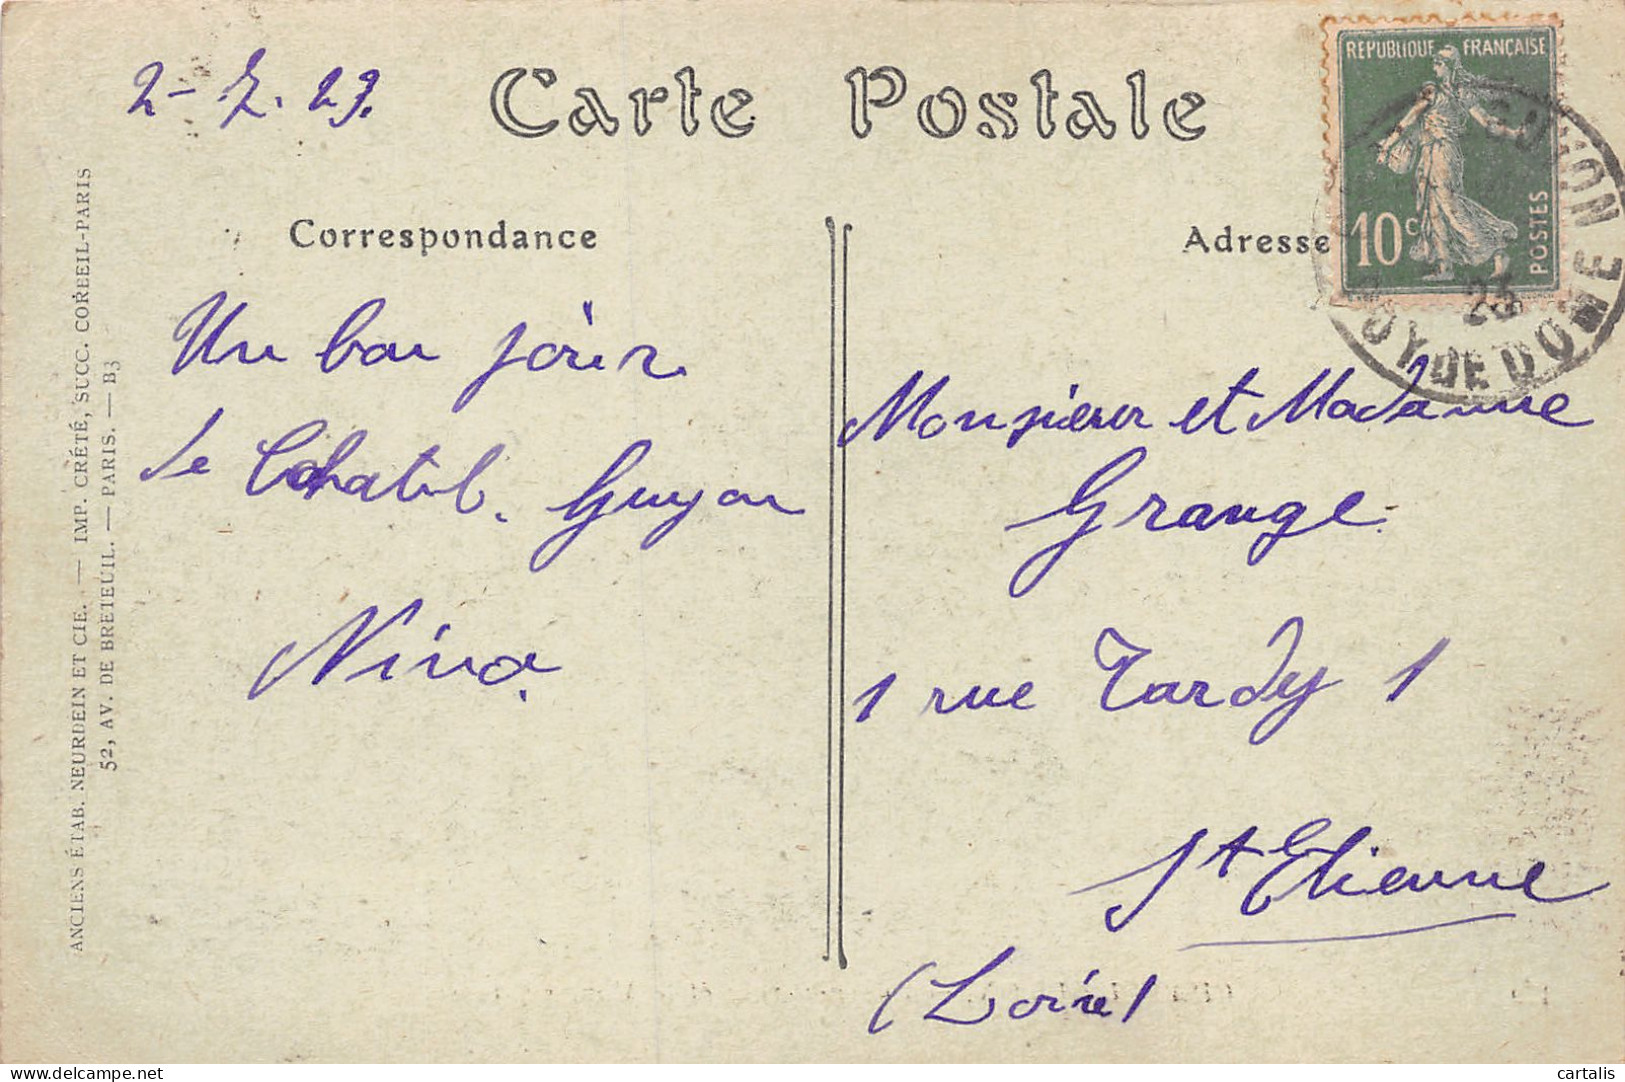 2-7.23.
Carte Postale
Correspondance
Adresse
REPUBLIQUE FRANÇAISE
10c
POSTES
PUY DE DOME
23
Un bon jour
de Chatel. Guyon
Nina.
Monsieur et Madame
Grange
1 rue Tardy 1
St Etienne
(Loire)
ANCIENS ÉTAB. NEURDEIN ET CIE. — IMP. CRÉTÉ, SUCC. CORBEIL-PARIS
52, AV. DE BRETEUIL. — PARIS. — B3
cartalis